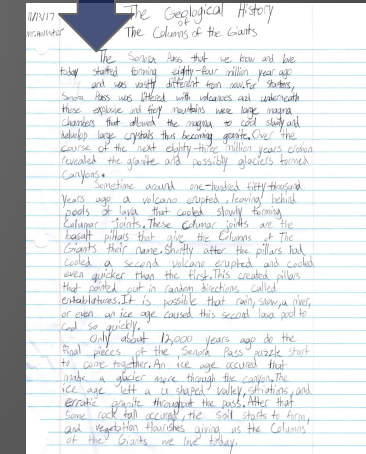 11/13/17
The Geological History
of
The Columns of the Giants
The Sonora Pass that we know and love
today started forming eighty-four million year ago
and was vastly different from now. For starters,
Sonora Pass was littered with volcanoes and underneath
these explosive and firey mountains were large magma
chambers that allowed the magma to cool slowly and
develop large crystals thus becoming granite. Over the
course of the next eighty-three million years erosion
revealed the granite and possibly glaciers formed
canyons.
Sometime around one-hundred fifty thousand
years ago a volcano erupted, leaving behind
pools of lava that cooled slowly forming
Columar joints. These columar joints are the
basalt pillars that give the Columns of The
Giants their name. Shortly after the pillars had
cooled a second volcano erupted and cooled
even quicker than the first. This created pillars
that pointed out in random directions called
entablatures. It is possible that rain, snow, a river,
or even an ice age caused this second lava pool to
cool so quickly.
Only about 12,000 years ago do the
final pieces of the Sonora Pass puzzle start
to come together. An ice age occured that
made a glacier move through the canyon. The
ice age left a u shaped valley, striations, and
erratic granite throughout the pass. After that
some rock fall occured, the soil starts to form,
and vegetation flourishes giving us the Columns
of the Giants we love today.